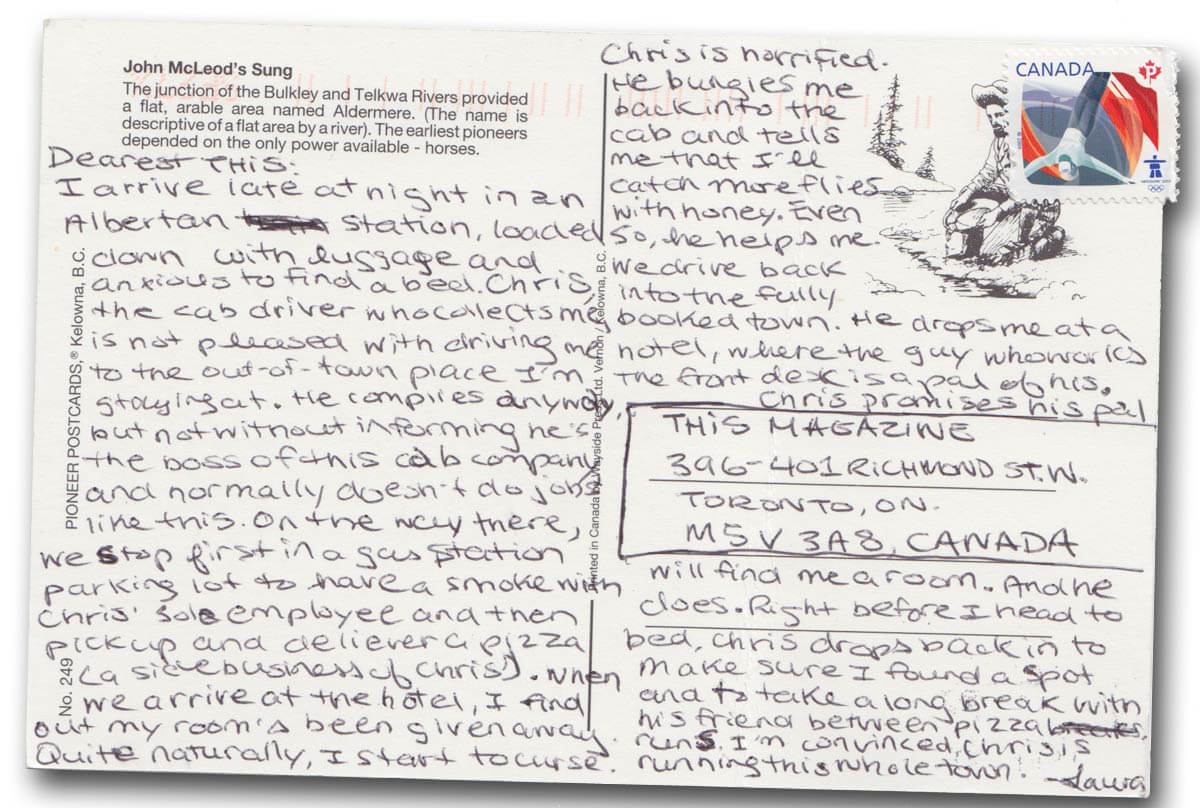 John McLeod's Sung
The junction of the Bulkley and Telkwa Rivers provided
a flat, arable area named Aldermere. (The name is
descriptive of a flat area by a river). The earliest pioneers
depended on the only power available - horses.
Dearest THIS:
I arrive late at night in an
Albertan station, loaded
down with luggage and
anxious to find a bed. Chris,
the cab driver who collects me,
is not pleased with driving me
to the out-of-town place I'm
staying at. He complies anyway,
but not without informing he's
the boss of this cab company
and normally doesn't do jobs
like this. On the way there,
we stop first in a gas station
parking lot to have a smoke with
Chris' sole employee and then
pick up and deliever a pizza
(a side business of Chris'). When
we arrive at the hotel, I find
out my room's been given away.
Quite naturally, I start to curse.
PIONEER POSTCARDS,® Kelowna, B.C.
No. 249
Printed in Canada by Wayside Press Ltd. Vernon / Kelowna, B.C.
Chris is horrified.
He bungies me
back into the
cab and tells
me that I'll
catch more flies
with honey. Even
so, he helps me.
We drive back
into the fully
booked town. He drops me at a
hotel, where the guy who works
the front desk is a pal of his.
Chris promises his pal
THIS MAGAZINE
396-401 RICHMOND ST. W.
TORONTO, ON.
M5V 3A8, CANADA
will find me a room. And he
does. Right before I head to
bed, Chris drops back in to
make sure I found a spot
and to take a long break with
his friend between pizza
runs. I'm convinced, Chris is
running this whole town. -Laura
CANADA
P